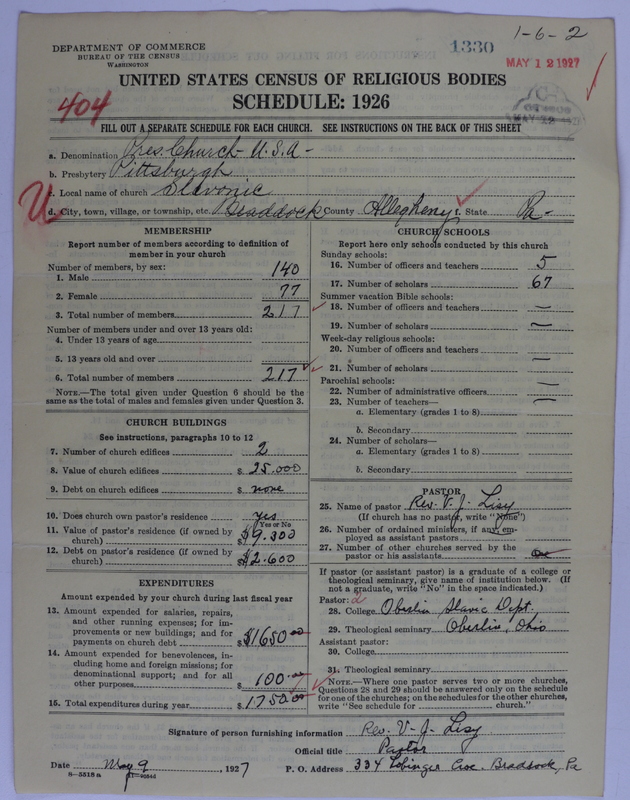 1-6-2
DEPARTMENT OF COMMERCE
BUREAU OF THE CENSUS
WASHINGTON
1330
MAY 12 1927
UNITED STATES CENSUS OF RELIGIOUS BODIES
SCHEDULE: 1926
404
FILL OUT A SEPARATE SCHEDULE FOR EACH CHURCH. SEE INSTRUCTIONS ON THE BACK OF THIS SHEET
a. Denomination Pres. Church - U.S.A -
b. Presbytery Pittsburgh
c. Local name of church Slavonic
U
d. City, town, village, or township, etc. Braddock County Allegheny f. State Pa -
MEMBERSHIP
Report number of members according to definition of
member in your church
Number of members, by sex:
1. Male 140
2. Female 77
3. Total number of members 217
Number of members under and over 13 years old:
4. Under 13 years of age
5. 13 years old and over
6. Total number of members 217
NOTE.—The total given under Question 6 should be the
same as the total of males and females given under Question 3.
CHURCH BUILDINGS
See instructions, paragraphs 10 to 12
7. Number of church edifices 2
8. Value of church edifices $ 25.000
9. Debt on church edifices $ none
10. Does church own pastor's residence yes
Yes or No
11. Value of pastor's residence (if owned by
church) $9.300
12. Debt on pastor's residence (if owned by
church) $2.600
EXPENDITURES
Amount expended by your church during last fiscal year
13. Amount expended for salaries, repairs,
and other running expenses; for im-
provements or new buildings; and for
payments on church debt $1650.00
14. Amount expended for benevolences, in-
cluding home and foreign missions; for
denominational support; and for all
other purposes $ 100.00
15. Total expenditures during year $1750.00
CHURCH SCHOOLS
Report here only schools conducted by this church
Sunday schools:
16. Number of officers and teachers 5
17. Number of scholars 67
Summer vacation Bible schools:
18. Number of officers and teachers —
19. Number of scholars —
Week-day religious schools:
20. Number of officers and teachers —
21. Number of scholars
Parochial schools:
22. Number of administrative officers —
23. Number of teachers— —
a. Elementary (grades 1 to 8)
b. Secondary
24. Number of scholars—
a. Elementary (grades 1 to 8)
b. Secondary
PASTOR
25. Name of pastor Rev. V. J. Lisy
(If church has no pastor, write "None")
26. Number of ordained ministers, if any, em-
ployed as assistant pastors
27. Number of other churches served by the
pastor or his assistants
If pastor (or assistant pastor) is a graduate of a college or
theological seminary, give name of institution below. (If
not a graduate, write "No" in the space indicated.)
Pastor: 2
28. College Oberlin Slavic Dept.
29. Theological seminary Oberlin, Ohio
Assistant pastor:
30. College
31. Theological seminary
NOTE.—Where one pastor serves two or more churches,
Questions 28 and 29 should be answered only on the schedule
for one of the churches; on the schedules for the other churches,
write "See schedule for church."
Signature of person furnishing information Rev. V. J. Lisy
Official title Pastor
Date May 9, 1927 P. O. Address 334 Lobinger Ave. Braddock, Pa
8—5518 a